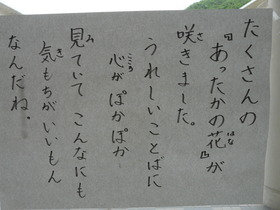 たくさんの
『あったかの花』が
咲きました。
うれしいことばに
心がぽかぽか
見ていて こんなにも
気もちがいいもん
なんだね。